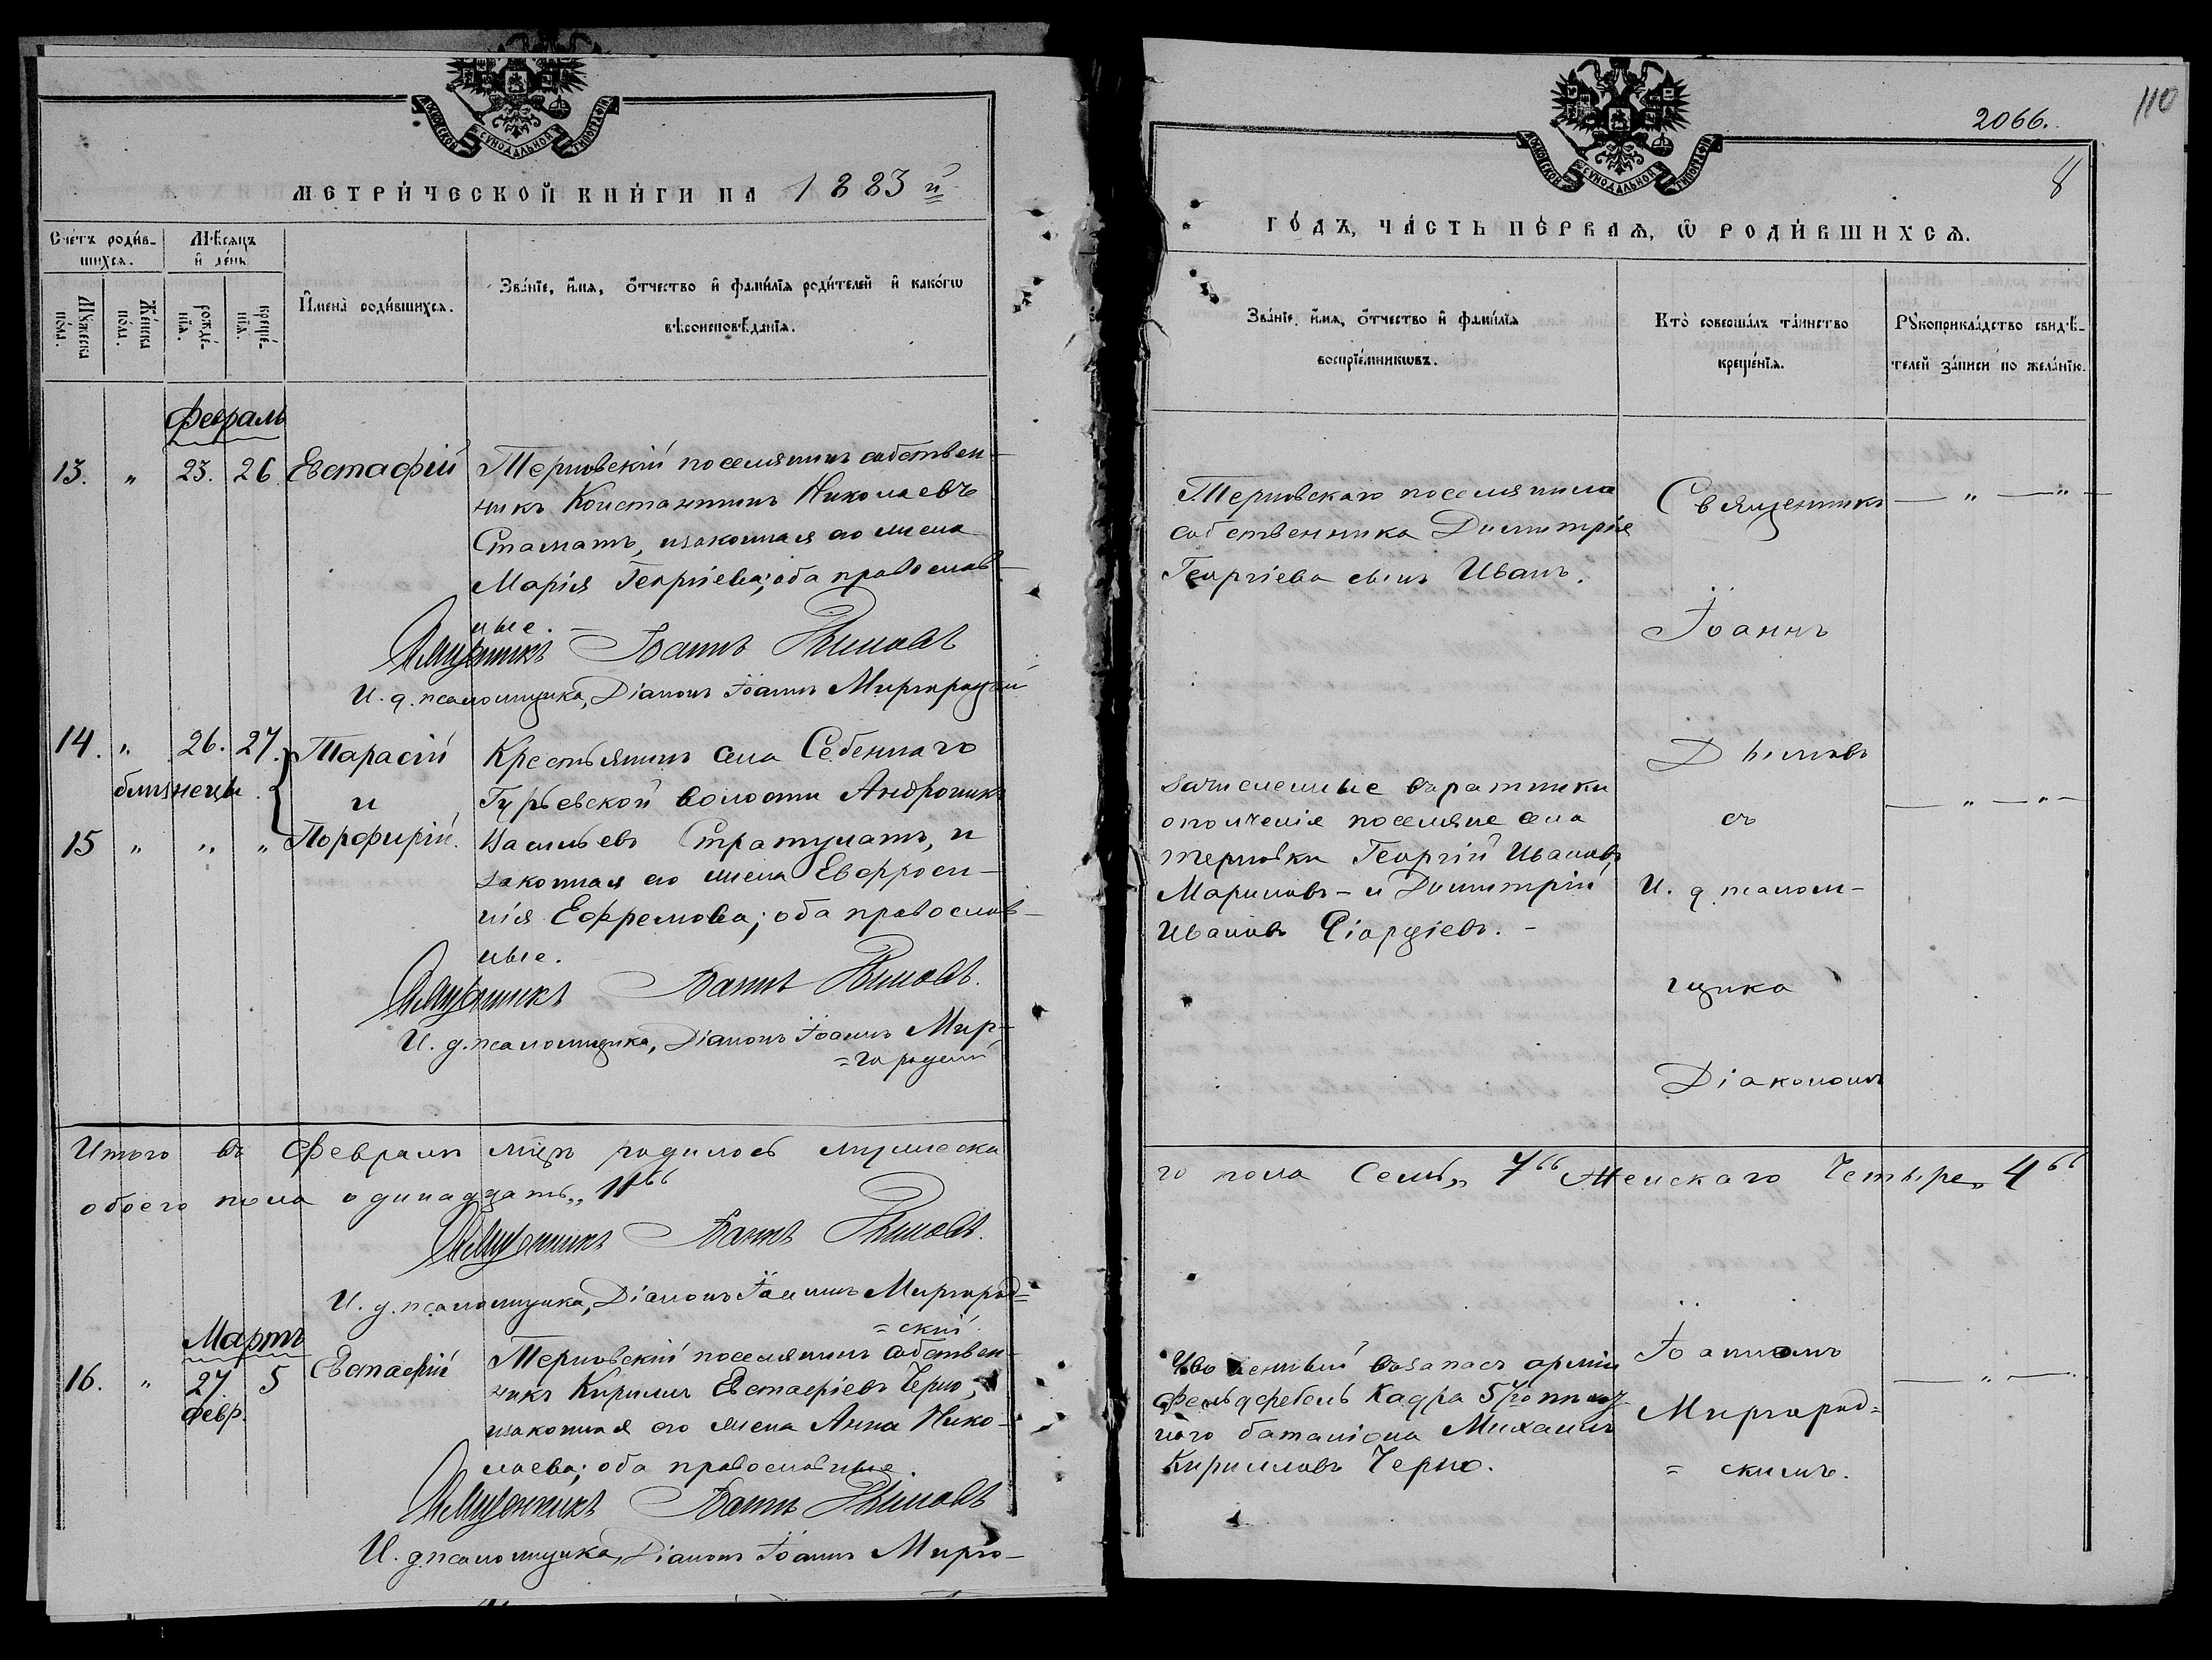 МЕТРИ́ЧЕСКОЙ КНИ́ГИ НА 1883 й
Сче́тъ роди́в-
шихся.
Му́жеска
пола.
Же́нска
пола.
Мѣсяцъ
и де́нь
рожде́-
нїя.
креще́-
нїя.
Имена̀ роди́вшихся.
Зва́нїе, и́мя, о́тчество и фами́лїя роди́телей и како́гѡ
вѣроисповѣ́данїя.
Февраль
13. " 23. 26 Евстафій
Терновскій поселянинъ собствен-
никъ Константинъ Николаевъ
Стаматъ, изаконная его жена
Марія Георгіева; оба православ-
ные.
Священникъ Іоаннъ Дымовъ
И. д. псаломщика, Діаконъ Іоаннъ Миргородскій
14. " 26. 27. Тарасій
близнецы и
15 " " " Порфирій.
Крестьянинъ села
Гурьевской волости Андроникъ
Васильевъ Стратулатъ, и
законная его жена Евфроси-
нія Ефремова; оба православ-
ные.
Священникъ Іоаннъ Дымовъ.
И. д. псаломщика, Діаконъ Іоаннъ Мир-
=городскій
Итого въ Февралѣ мцѣ родилось мужеска
обоего пола одинадцать „ 11“
Священникъ Іоаннъ Дымовъ.
И. д. псаломщика, Діаконъ Іоаннъ Миргород=
=скій.
Мартъ
16. " 27. 5 Евстафій
февр.
Терновскій поселянинъ собствен-
никъ Кириллъ Евстафіевъ Черно,
изаконная его жена Анна Нико-
лаева; оба православные.
Священникъ Іоаннъ Дымовъ
И. д. псаломщика, Діаконъ Іоаннъ Мирго-
110
2066.
8
ГО́ДЪ, ЧА́СТЬ ПЕ́РВАЯ, Ѡ РОДИ́ВШИХСЯ.
Зва́нїе, и́мя, о́тчество и фами́лїя
воспрїе́мникѡвъ.
Кто̀ соверша́лъ та́инство
креще́нїя.
Рꙋкоприкла́дство свидѣ́-
телей за́писи по жела́нїю.
Терновскаго поселянина
собственника Димитрія
Георгіева сынъ Иванъ.
Священникъ
— " — " —
Іоаннъ
Дымовъ
съ
И. д. псалом-
щика
Діакономъ
зачисленные въ ратники
ополченія поселяне села
терновки Георгій Ивановъ
Мариновъ - и Димитрій
Ивановъ Гіоргіевъ. -
— " — " —
го пола Семь „ 7“ Женскаго Четыре „ 4“
Уволенный въ запасъ арміи
фельдфебель Кадра 5го
наго баталіона Михаилъ
Кирилловъ Черно.
Іоанномъ
Миргород=
= скимъ.
— " —